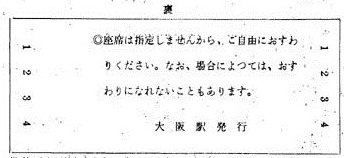 裏
◎座席は指定しませんから、ご自由におすわ
りください。なお、場合によつては、おす
わりになれないこともあります。
大阪駅発行
1
2
3
4
1
2
3
4